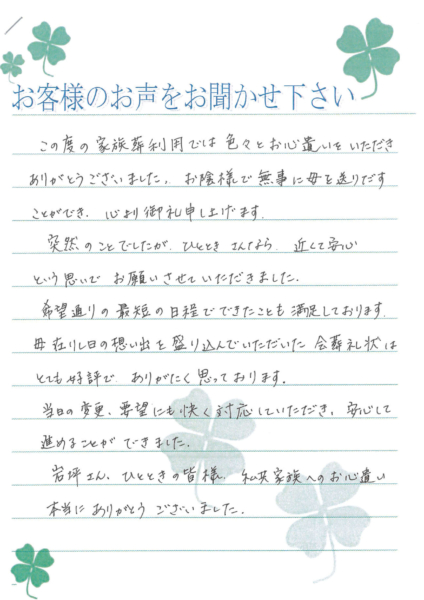 お客様のお声をお聞かせ下さい
この度の家族葬利用では色々とお心遣いをいただき
ありがとうございました。お陰様で無事に母を送りだす
ことができ、心より御礼申し上げます。
突然のことでしたが、ひとときさんなら、近くて安心
という思いで お願いさせていただきました。
希望通りの最短の日程でできたことも満足しております。
母在りし日の想い出を盛り込んでいただいた会葬礼状は
とても好評で、ありがたく思っております。
当日の変更、要望にも快く対応していただき、安心して
進めることができました。
岩坪さん、ひとときの皆様、私共家族へのお心遣い
本当にありがとうございました。